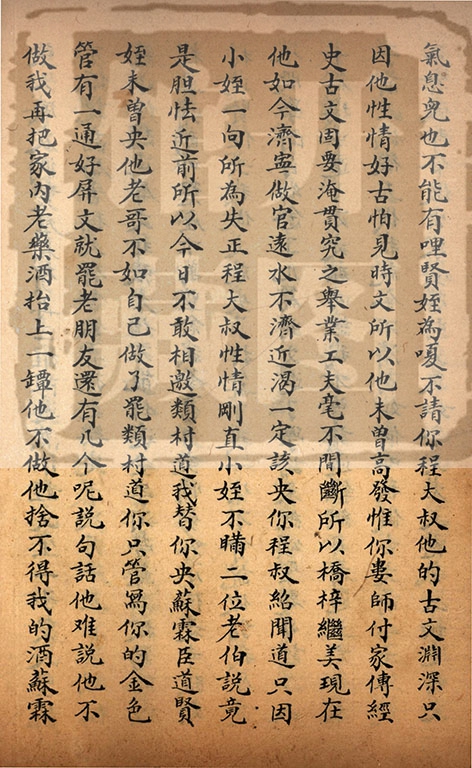 氣息兒也不能有哩賢姪為嗄不請你程大叔他的古文淵深只
因他性情好古怕見時文所以他未曾高發惟你婁師付家傳經
史古文固要淹貫究之舉業工夫毫不間斷所以橋梓繼美現在
他如今濟寧做官遠水不濟近渴一定該央你程叔紹聞道只因
小姪一向所為失正程大叔性情剛直小姪不瞞二位老伯說竟
是胆怯近前所以今日不敢相邀類村道我替你央蘇霖臣道賢
姪未曾央他老哥不如自己做了罷類村道你只管寫你的金色
管有一通好屏文就罷老朋友還有几个呢説句話他难說他不
做我再把家內老藥酒抬上一罈他不做他捨不得我的酒蘇霖